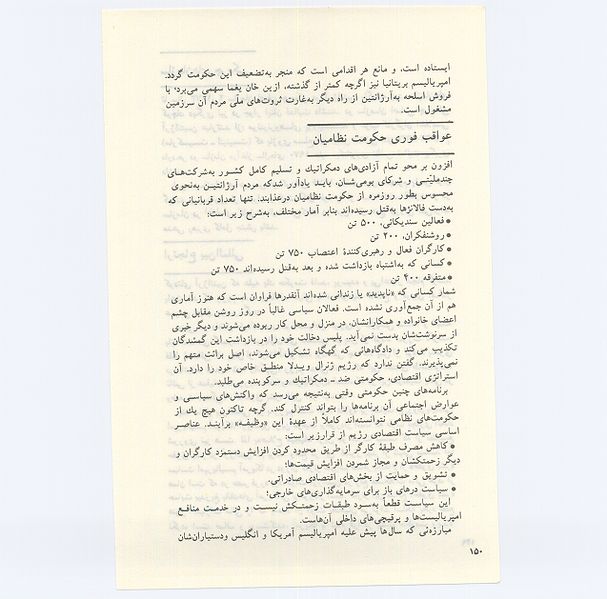 ایستاده است، و مانع هر اقدامی است که منجر به‌تضعیف این حکومت گردد.
امپریالیسم بریتانیا نیز اگرچه کمتر از گذشته، ازین خان یغما سهمی می‌برد؛ با
فروش اسلحه به‌آرژانتین از راه دیگر به‌غارت ثروت‌های ملّی مردم آن سرزمین
مشغول است.
عواقب فوری حکومت نظامیان
افزون بر محو تمام آزادی‌های دمکراتیك و تسلیم کامل کشور به‌شرکت‌های
چندملیّتی و شرکای بومی‌شان، باید یادآور شدکه مردم آرژانتین به‌نحوی
محسوس بطور روزمره از حکومت نظامیان درعذابند. تنها تعداد قربانیانی که
به‌دست فالانژها به‌قتل رسیده‌اند بنابر آمار مختلف، به‌شرح زیر است:
● فعالین سندیکائی، ۵۰۰ تن
● روشنفکران، ۲۰۰ تن
● کارگران فعال و رهبری‌کنندهٔ اعتصاب ۷۵۰ تن
● کسانی که به‌اشتباه بازداشت شده و بعد به‌قتل رسیده‌اند ۷۵۰ تن
● متفرقه ۴۰۰ تن
شمار کسانی که «ناپدید» یا زندانی شده‌اند آنقدرها فراوان است که هنوز آماری
هم از آن جمع‌آوری نشده است. فعالان سیاسی غالباً در روز روشن مقابل چشم
اعضای خانواده و همکارانشان، در منزل و محل کار ربوده می‌شوند و دیگر خبری
از سرنوشت‌شان بدست نمی‌آید. پلیس دخالت خود را در بازداشت این گمشدگان
تکذیب می‌کند و دادگاه‌هائی که گهگاه تشکیل می‌شوند، اصل برائت متهم را
نمی‌پذیرند. گفتن ندارد که رژیم ژنرال ویدلا منطق خاص خود را دارد. آن
استراتژی اقتصادی، حکومتی ضد ـ دمکراتیك و سرکوبنده می‌طلبد.
برنامه‌های چنین حکومتی وقتی به‌نتیجه می‌رسد که واکنش‌های سیاسی و
عوارض اجتماعی آن برنامه‌ها را بتواند کنترل کند. گرچه تاکنون هیچ یك از
حکومت‌های نظامی نتوانسته‌اند کاملاً از عهدهٔ این «وظیفه» برآیند. عناصر
اساسی سیاست اقتصادی رژیم از قرارزیر است:
● کاهش مصرف طبقهٔ کارگر از طریق محدود کردن افزایش دستمزد کارگران و
دیگر زحمتکشان و مجاز شمردن افزایش قیمت‌ها؛
● تشویق و حمایت از بخش‌های اقتصادی صادراتی.
● سیاست درهای باز برای سرمایه‌گذاری‌های خارجی؛
این سیاست قطعاً به‌سود طبقات زحمتکش نیست و در خدمت منافع
امپریالیست‌ها و پرقیچی‌های داخلی آن‌هاست.
مبارزه‌ئی که سال‌ها پیش علیه امپریالیسم آمریکا و انگلیس ودستیاران‌شان
۱۵۰